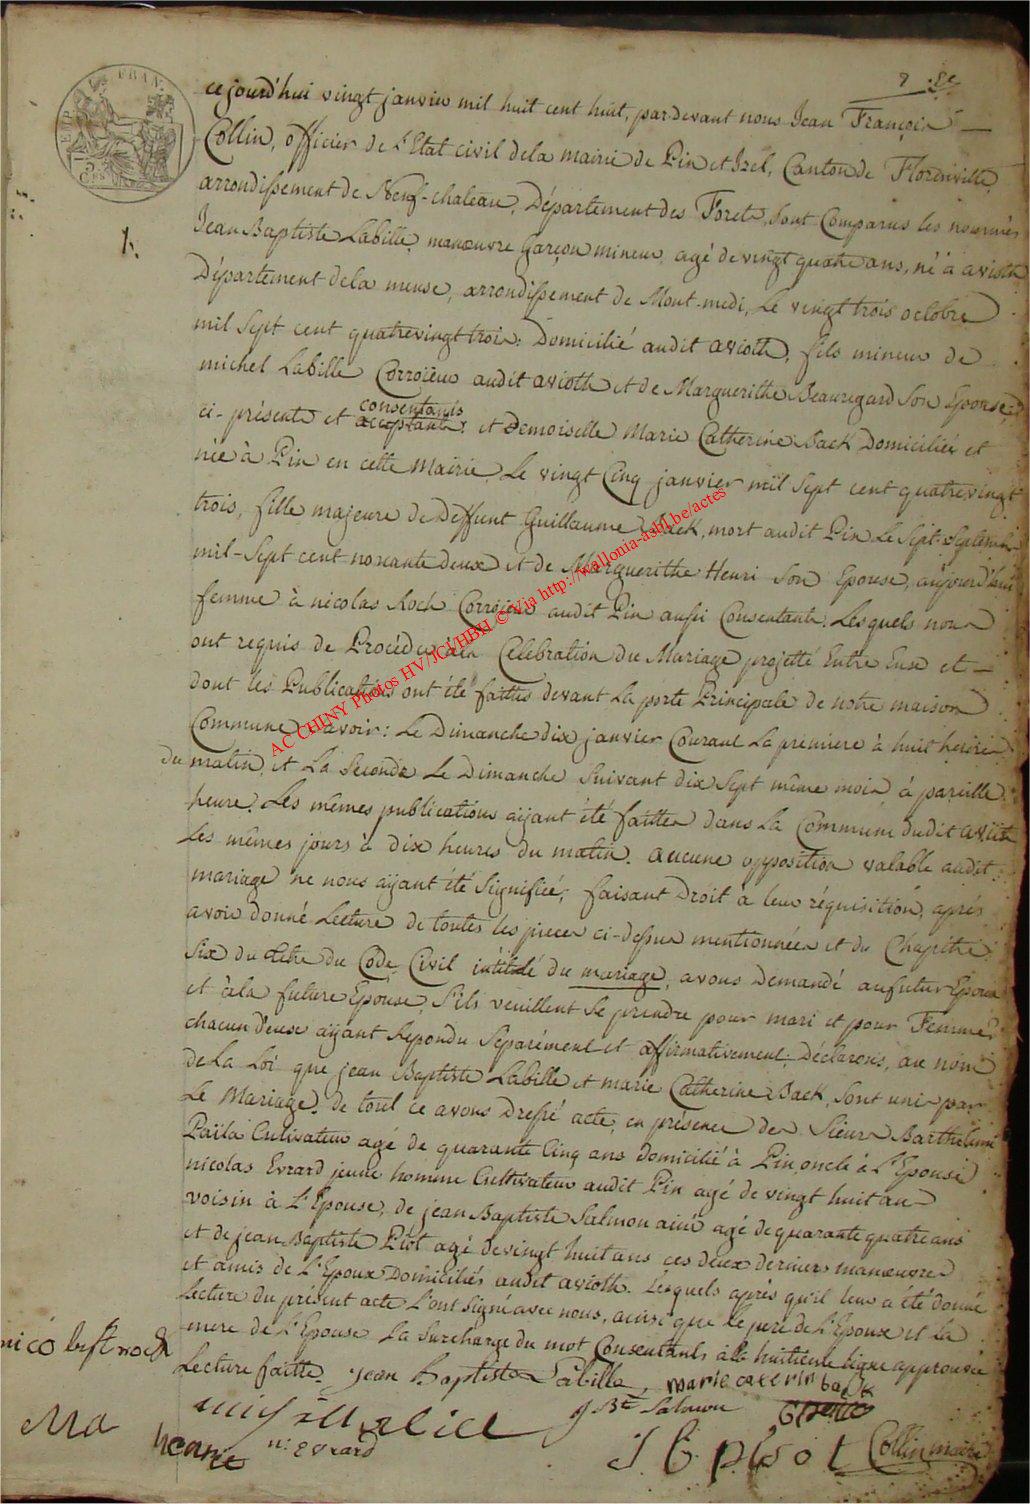 EMP. FRAN.
cejourd'hui vingt janvier mil huit cent huit, pardevant nous Jean François
Collin, officier de l'Etat civil dela mairie de Pin et Izel, Canton de Florenville,
arrondissement de Neuf-chateau, Département des Forets, sont Comparus les nommés
1.
Jean Baptiste Labille, manœuvre garçon mineur agé de vingt quatre ans, né à avioth
Département dela meuse, arrondissement de Mont-medi, le vingt trois octobre
mil sept cent quatrevingt trois; Domicilié audit avioth, fils mineur de
michel Labille Corroïeur audit avioth et de Marguerithe Beauregard Son Epouse,
consentants
ci-présents et acceptants; et Demoiselle Marie Catherine Back Domiciliée et
née à Pin en cette Mairie, Le vingt Cinq janvier mil sept cent quatrevingt
trois, fille majeure de Deffunt Guillaume Back, mort audit Pin Le Sept Septembre
mil-Sept cent nonante deux et de Marguerithe Henri Son Epouse, aujourd'hui
femme à nicolas Roch Corroïeur audit Pin aussi Consentante; Lesquels nous
ont requis de Procéder à la Célébration du Mariage projetté Entre Eux et
dont les Publications ont été faittes devant La porte Principale de notre maison
Commune, Savoir: Le Dimanche dix janvier Courant La premiere à huit heures
du matin, et La Seconde Le Dimanche Suivant dix Sept même mois à pareille
heure; Les mêmes publications aÿant été faittes dans La Commune dudit avioth
Les mêmes jours à dix heures du matin. aucune opposition valable audit
mariage ne nous aÿant été Signifiée; faisant Droit à leur réquisition, après
avoir donné Lecture de toutes les pieces ci-dessus mentionnées et du Chapitre
Six du titre du Code Civil intitulé du mariage, avons Demandé aufutur Epoux
et à la future Epouse, S'ils veuillent Se prendre pour mari et pour Femme;
chacun d'eux aÿant Repondu Séparément et affirmativement; Déclarons, au nom
de La Loi que jean Baptiste Labille et marie Catherine Back, Sont unis par
Le Mariage. De tout ce avons Dressé acte, en présence des Sieurs Barthélemi
Païla Cultivateur agé de quarante Cinq ans domicilié à Pin, oncle à L'Epouse
nicolas Evrard jeune homme Cultivateur audit Pin agé de vingt huit ans
voisin à L'Epouse, de jean Baptiste Salmon ainé agé de quarante quatre ans
et de jean Baptiste Piot agé de vingt huit ans ces deux derniers manœuvres
et amis de L'Epoux Domiciliés audit avioth. Lesquels après qu'il leur a été donné
Lecture du présent acte L'ont Signé avec nous, ainsi que le pere de L'Epoux et la
mere de L'Epouse La Surcharge du mot Consentants à la huitieme ligne approuvée
Lecture faitte. jean Baptiste Labille marie caterin back
nicolas rock
j Bte Salmon
Ma henrie
n: evrard
J B piot Collin maire
AC CHINY Photos HV/JCL/HBH © Via http://wallonia-asbl.be/actes